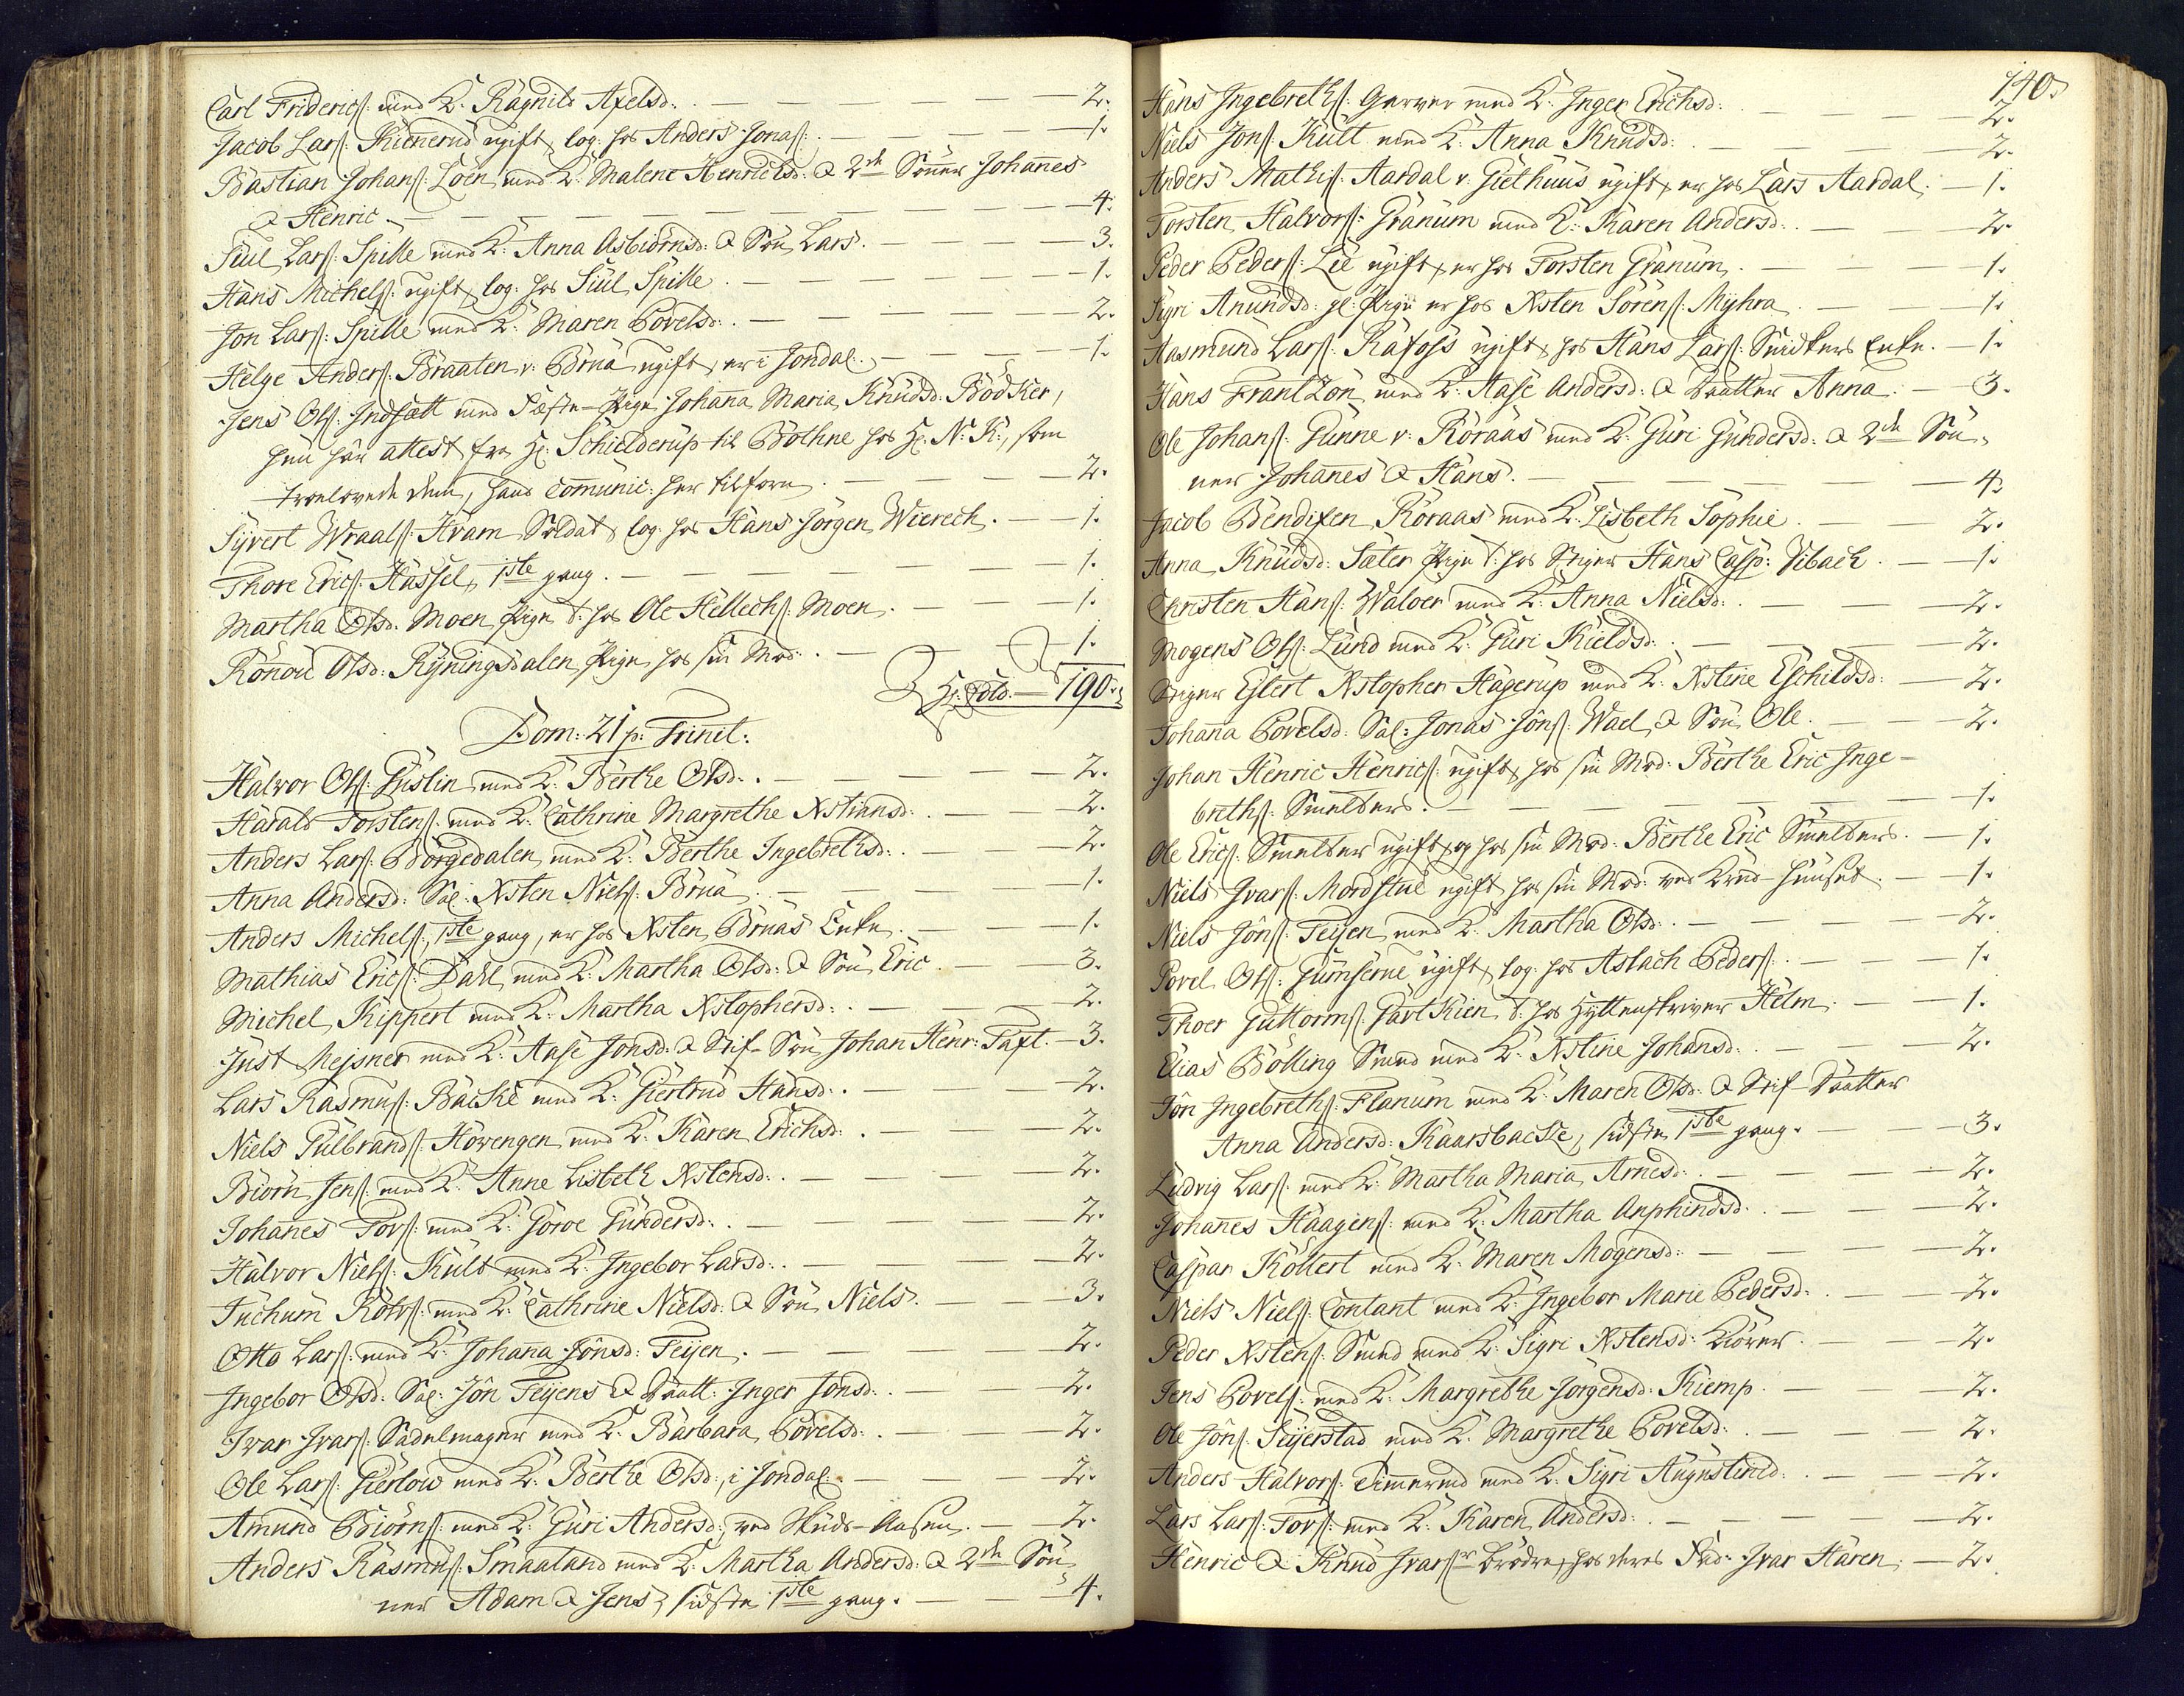 Carl Friderics: med K: Ragnild Axelsd: — 2.
Jacob Lars: Kienerud ugift, log: hos Anders Jonas: — 1.
Bastian Johans: Loen med K: Malene Henrichsd: & 2de Sönner Johanes
& Henric — 4.
Siul Lars: Spille med K: Anna Asbiörnsd: & Sön Lars. — 3.
Hans Michels: ugift, log: hos Siul Spille. — 1.
Jon Lars: Spille med K: Maren Povelsd: — 2.
Helge Anders: Braaten v: Brua ugift, er i Jondal. — 1.
Jens Ols: Indsætt med Fæste-Pige Johana Maria Knudsd: Bödker,
hun har attest fra Hr: Schielderup til Bothne hos Hr: N: K:, som
troelovede dem, hand Com̄unic: her tilforn. — 2.
Syvert Wraals: Hvam Soldat, log: hos Hans Jörgen Wierech. — 1.
Thore Erics: Hassel, 1ste gang. — 1.
Martha Olsd: Moen Pige t: hos Ole Hellechs: Moen. — 1.
Rönou Olsd: Ryningsdalen, Pige, hos sin Mod: — 1.
190.
Dom: 21 p: Trinit:
Halvor Ols: Gustin med K: Berthe Olsd: — 2.
Harald Torstens: med K: Cathrine Margrethe Xstiansd: — 2.
Anders Lars: Borgedalen med K: Berthe Ingebrethsd: — 2.
Anna Andersd: Sal: Xsten Niels: Brua. — 1.
Anders Michels: 1ste gang, er hos Xsten Bruas Enke. — 1.
Mathias Erics: Dahl med K: Martha Olsd: & Sön Eric. — 3.
Michel Kippert med K: Martha Xstophersd: — 2.
Just Mejsner med K: Aase Jonsd: & Stif-Sön Johan Henr: Taft. — 3.
Lars Rasmus: Backe med K: Giertrud Hansd: — 2.
Niels Gulbrands: Howengen med K: Karen Erichsd: — 2.
Biörn Jens: med K: Anne Lisbeth Xstensd: — 2.
Johanes Tors: med K: Göroe Gundersd: — 2.
Halvor Niels: Kult med K: Ingebor Larsd: — 2.
Juchum Rolvs: med K: Cathrine Nielsd: & Sön Niels. — 3.
Otto Lars: med K: Johana Jönsd: Teijen. — 2.
Ingebor Olsd: Sal: Jön Teijens & Daatt: Inger Jonsd: — 2.
Ivar Ivars: Sadelmager med K: Barbara Povelsd: — 2.
Ole Lars: Gierlow med K: Berthe Olsd:, i Jondal: — 2.
Amund Biörns: med K: Guri Andersd:, ved Skuds-Aasen. — 2.
Anders Rasmus: Smaaland med K: Martha Andersd: & 2de Sön
ner Adam & Jens, sidste 1ste gang. — 4.
140.
Hans Ingebreths: Garver med K: Inger Erichsd: — 2.
Niels Jons: Kult med K: Anna Knudsd: — 2.
Anders Mathis: Aardal v: Giethuus ugift, er hos Lars Aardal. — 1.
Torsten Halvors: Granum med K: Karen Andersd: — 2.
Peder Peders: Lie ugift, er hos Torsten Granum. — 1.
Sigri Anundsd: gl: Pige er hos Xsten Sörens: Myhra. — 1.
Aasmund Lars: Rafoss ugift, hos Hans Lars: Snidkers Enke. — 1.
Hans Frantzon med K: Aase Andersd: & Daatter Anna. — 3.
Ole Johans: Gunne v: Röraas med K: Guri Gundersd: & 2de Sön
ner Johanes & Hans. — 4.
Jacob Bendixen Röraas med K: Lisbeth Sophie. — 2.
Anna Knudsd: Sæter Pige t: hos Stiger Hans Casp: Vibach. — 1.
Christen Hans: Waloer med K: Anna Nielsd: — 2.
Mogens Ols: Lund med K: Guri Kieldsd: — 2.
Stiger Eylert Xstopher Hagerup med K: Xstine Eschildsd: — 2.
Johana Povelsd: Sal: Jonas Jöns: Wael & Sön Ole. — 2.
Johan Henric Henrics: ugift, hos sin Mod: Berthe Eric Inge-
breths: Smelters. — 1.
Ole Erics: Smelter ugift, og hos sin Mod: Berthe Eric Smelters. — 1.
Niels Ivars: Mordstue ugift, hos sin Mod: ved Krud-Huuset. — 1.
Niels Jöns: Teijen med K: Martha Olsd: — 2.
Povel Ols: Gumserue ugift, log: hos Aslach Peders: — 1.
Thoer Guttorms: Gartkien t: hos Hyttenskriver Helm. — 1.
Elias Bölling Smed med K: Xstine Johansd: — 2.
Jön Ingebreths: Flanum med K: Maren Olsd: & Stif-Daatter
Anna Andersd: Kaarsbacke, sidste 1ste gang. — 3.
Ludvig Lars: med K: Martha Maria Arnesd: — 2.
Johanes Haagens: med K: Martha Anphindsd: — 2.
Caspar Köllert med K: Maren Mogensd: — 2.
Niels Niels: Contant med K: Ingebor Marie Pedersd: — 2.
Peder Xstens: Smed med K: Sigri Xstensd: Kiörer. — 2.
Jens Povels: med K: Margrethe Jörgensd: Kiemp. — 2.
Ole Jöns: Seijerstad med K: Margrethe Povelsd: — 2.
Anders Halvors: Timerud med K: Sigri Augustind: — 2.
Lars Lars: Tors: med K: Karen Andersd: — 2.
Henric & Knud Ivars: Brödre, hos deres Fad: Ivar Haren. — 2.